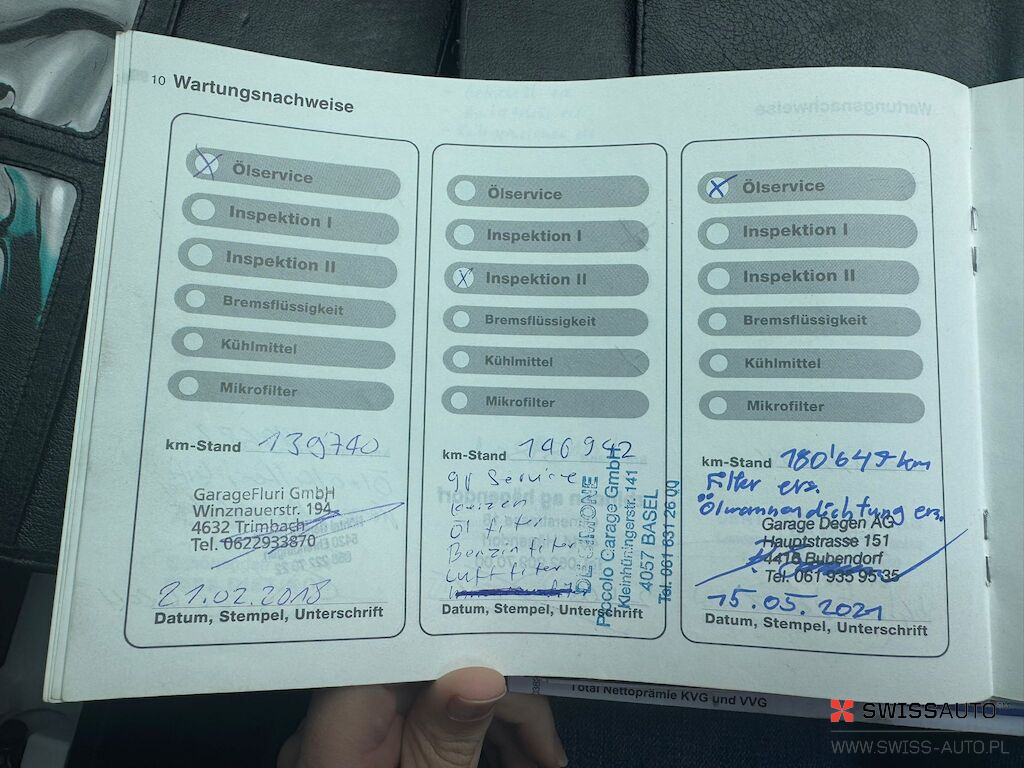 10 Wartungsnachweise
Ölservice
Inspektion I
Inspektion II
Bremsflüssigkeit
Kühlmittel
Mikrofilter
km-Stand 139740
GarageFluri GmbH
Winznauerstr. 194
4632 Trimbach
Tel. 0622933870
21.02.2018
Datum, Stempel, Unterschrift
Ölservice
Inspektion I
Inspektion II
Bremsflüssigkeit
Kühlmittel
Mikrofilter
km-Stand 146942
gr Service
Öl filter
Benzinfilter
Luftfilter
DE SIMONE
Piccolo Garage GmbH
Kleinhüningerstr. 141
4057 BASEL
Tel. 061 631 26 00
Datum, Stempel, Unterschrift
Ölservice
Inspektion I
Inspektion II
Bremsflüssigkeit
Kühlmittel
Mikrofilter
km-Stand 180'649 km
Filter ers.
Ölwannendichtung ers.
Garage Degen AG
Hauptstrasse 151
4416 Bubendorf
Tel. 061 935 95 35
15.05.2021
Datum, Stempel, Unterschrift
Total Nettoprämie KVG und VVG
SWISSAUTO
WWW.SWISS-AUTO.PL